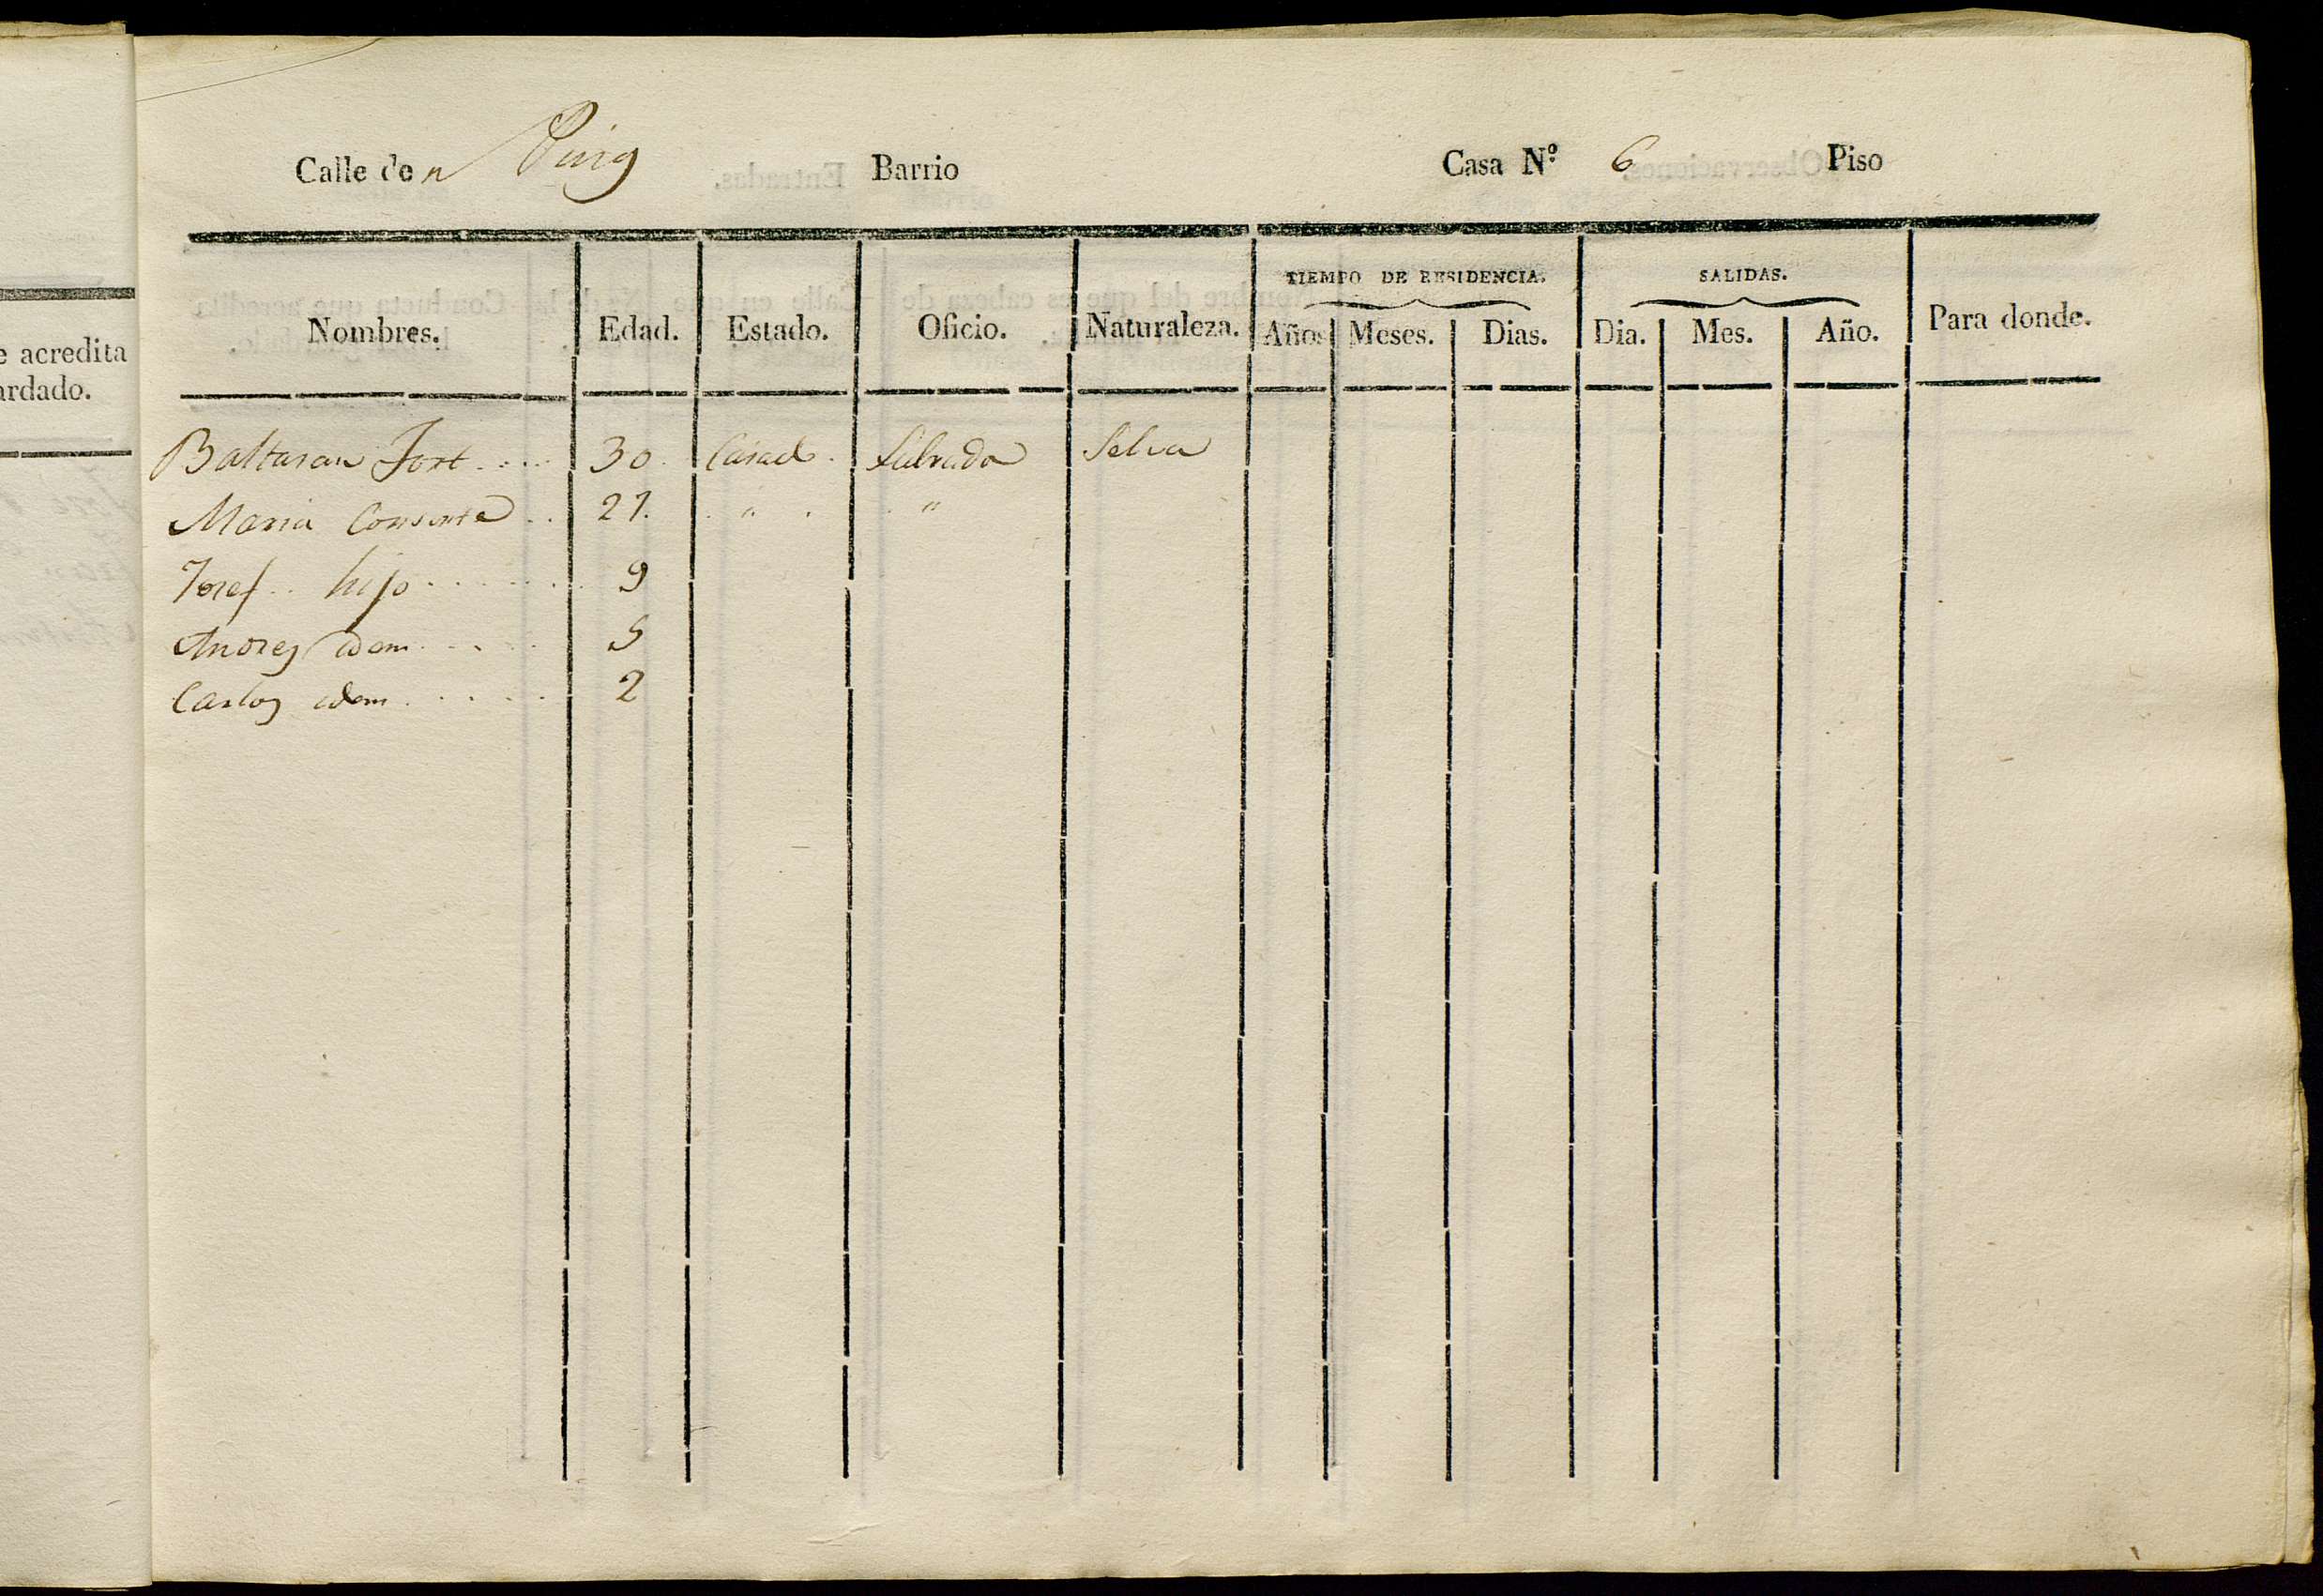 e acredita
ardado.
Calle de n Puig Barrio Casa N.º 6 Piso
TIEMPO DE RESIDENCIA. SALIDAS.
Nombres. Edad. Estado. Oficio. Naturaleza. Años Meses. Dias. Dia. Mes. Año. Para donde.
Baltasar Fort.... 30. Casad. Labrador Selva
Maria Consorte.. 27. " "
Josef.. hijo...... 9
Andres idem..... 5
Carlos idem..... 2